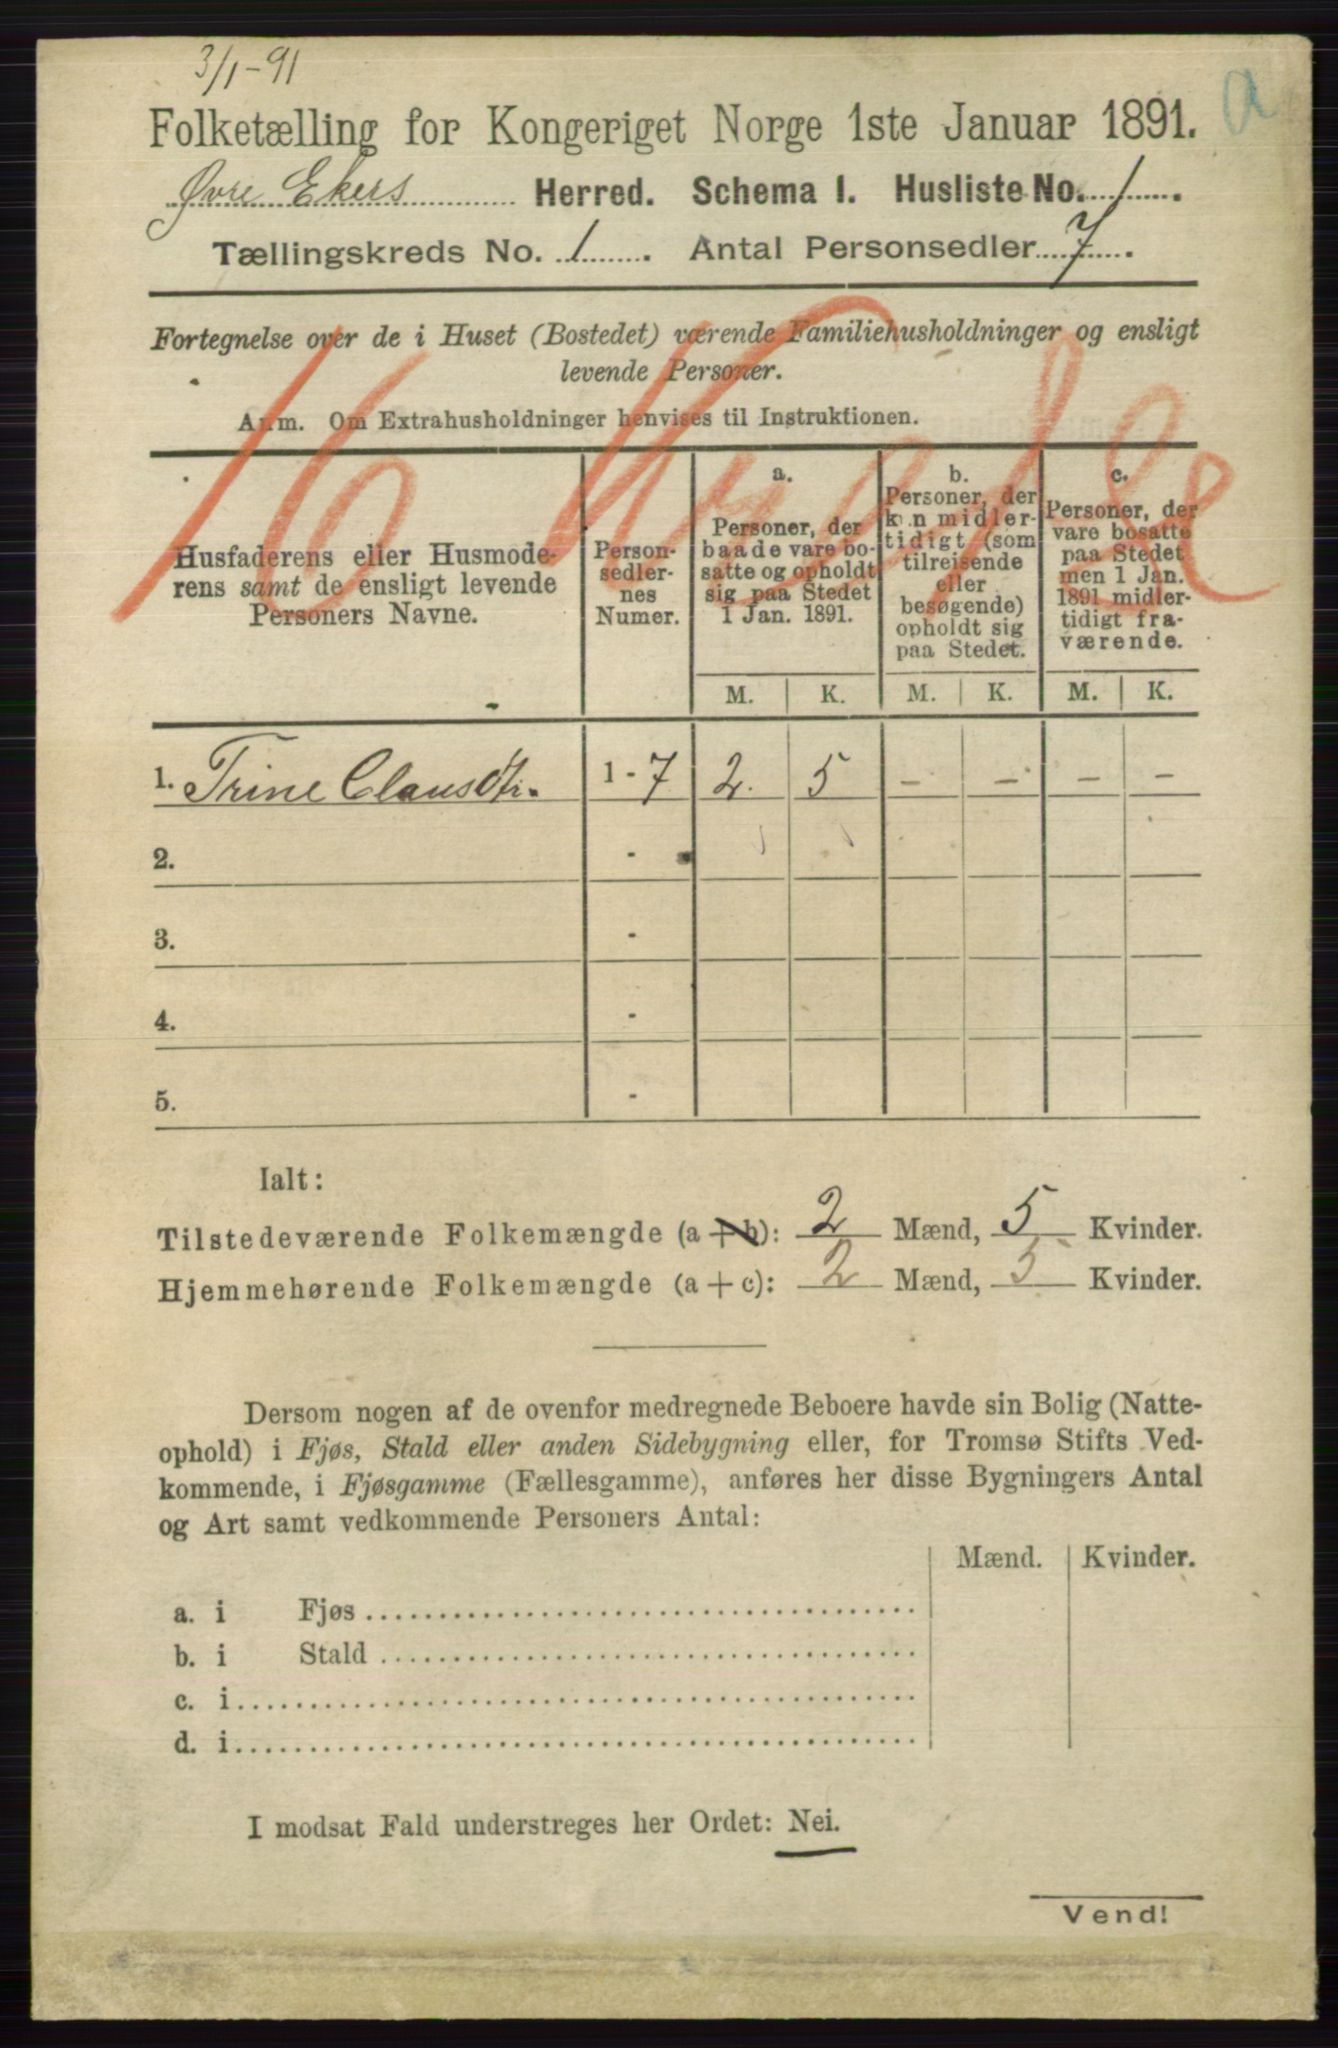 3/1-91
a
Folketælling for Kongeriget Norge 1ste Januar 1891.
Øvre Ekers Herred. Schema 1. Husliste No. 1.
Tællingskreds No. 1. Antal Personsedler 7.
Fortegnelse over de i Huset (Bostedet) værende Familiehusholdninger og ensligt
levende Personer.
Anm. Om Extrahusholdninger henvises til Instruktionen.
Husfaderens eller Husmode-
rens samt de ensligt levende
Personers Navne.
Person-
sedler-
nes
Numer.
a.
Personer, der
baade vare bo-
satte og opholdt
sig paa Stedet
1 Jan. 1891.
b.
Personer, der
kun midler-
tidigt (som
tilreisende
eller
besøgende)
opholdt sig
paa Stedet.
c.
Personer, der
vare bosatte
paa Stedet
men 1 Jan.
1891 midler-
tidigt fra-
værende.
M. K. M. K. M. K.
1. Trine Clausdtr. 1 - 7 2. 5 - - - -
2. -
3. -
4. -
5. -
Ialt:
Tilstedeværende Folkemængde (a + b): 2 Mænd, 5 Kvinder.
Hjemmehørende Folkemængde (a + c): 2 Mænd, 5 Kvinder.
Dersom nogen af de ovenfor medregnede Beboere havde sin Bolig (Natte-
ophold) i Fjøs, Stald eller anden Sidebygning eller, for Tromsø Stifts Ved-
kommende, i Fjøsgamme (Fællesgamme), anføres her disse Bygningers Antal
og Art samt vedkommende Personers Antal:
Mænd. Kvinder.
a. i Fjøs
b. i Stald
c. i
d. i
I modsat Fald understreges her Ordet: Nei.
Vend!